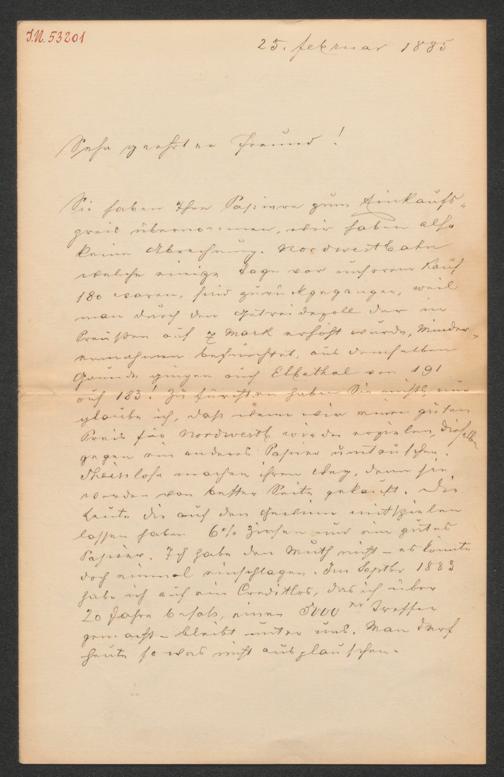 J.N. 53201
25. februar 1885
Sehr geehrter Freund!
Sie haben Ihre Papiere zum Einkaufs-
preis übernommen, wir haben also
keine Abrechnung. Nordwestbahn
welche einige Tage vor unserem Kauf
180 waren, sind zurückgegangen, weil
man durch den Getreidezoll der in
Preußen auf Mark erhöht wurde, Minder-
einnahmen befürchtet, aus demselben
Grunde gingen auch Elbethal von 191
auf 183! Zu fürchten haben Sie nichts, nur
glaube ich, daß wenn wir einen guten
Preis für Nordwestb wieder erzielen, dieselben
gegen ein anderes Papier umtauschen.
Theisslose machen ihren Weg, denn sie
werden von bester Seite gekauft. Die
Leute die auf den Gewinn mitspielen
lassen haben 6% Zinsen und ein gutes
Papier. Ich habe den Muth nicht – es könnte
doch einmal einschlagen. Im Septbr 1883
habe ich auf ein Creditlos, das ich über
20 Jahre besaß, einen Treffer
gemacht – bleibt unter uns. Man darf
heute so was nicht ausplauschen.